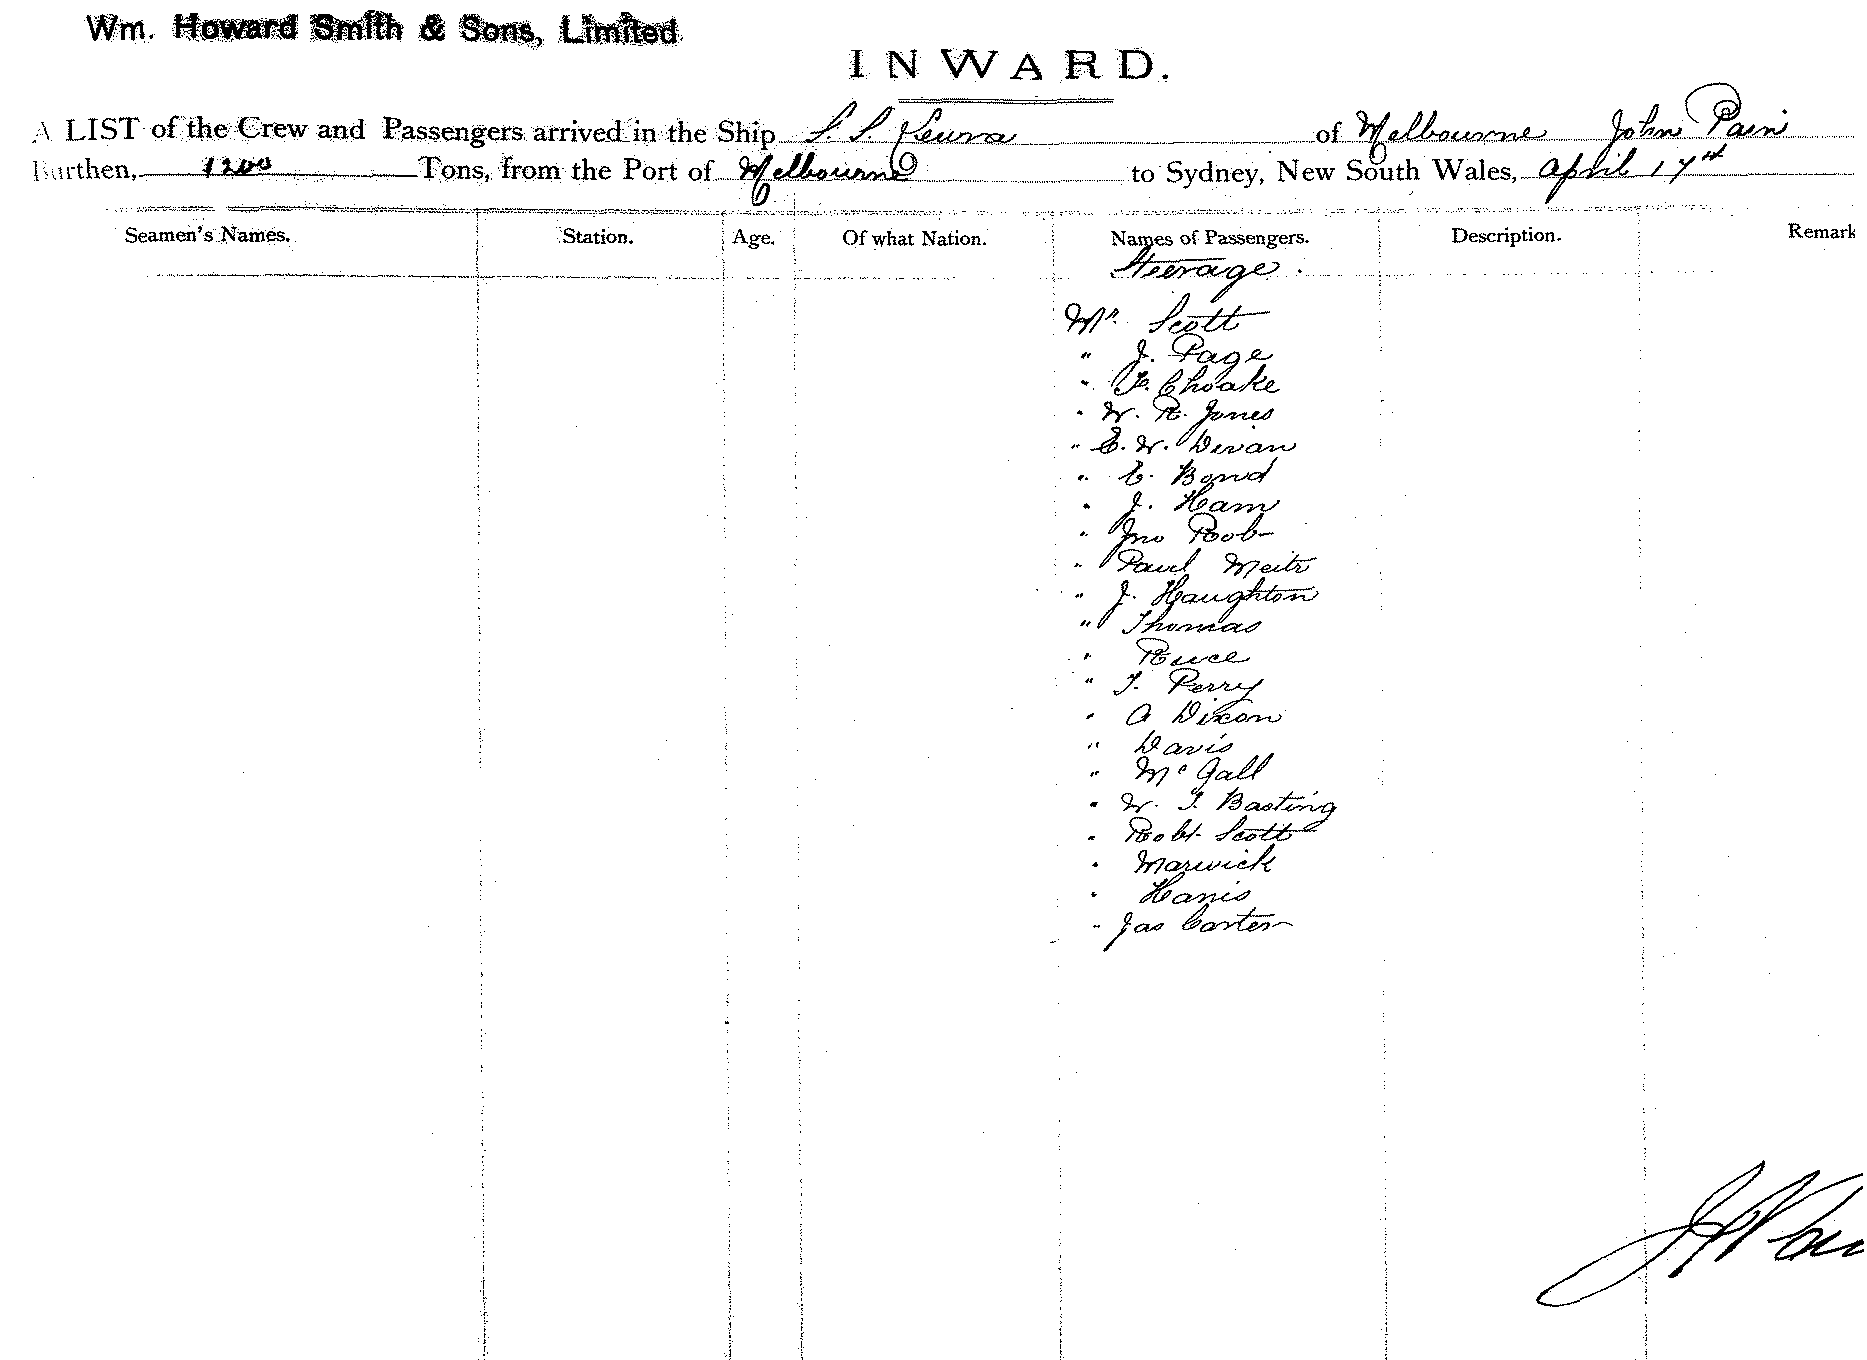 Wm. Howard Smith & Sons, Limited
INWARD.
A LIST of the Crew and Passengers arrived in the Ship S. S. Leura of Melbourne John Pain
Burthen, 1200 Tons, from the Port of Melbourne to Sydney, New South Wales, April 17th
Seamen's Names. Station. Age. Of what Nation. Names of Passengers. Description. Remark
Steerage.
Mr. Scott
" J. Page
" F. Choake
" W. R. Jones
" E. W. Divan
" E. Bond
" J. Ham
" Jno Roob
" Paul Meitz
" J. Haughton
" Thomas
" Ruce
" T. Perry
" A Dixon
" Davis
" Mc Gall
" W. T. Basting
" Robt Scott
" Marwick
" Harris
" Jas Carter